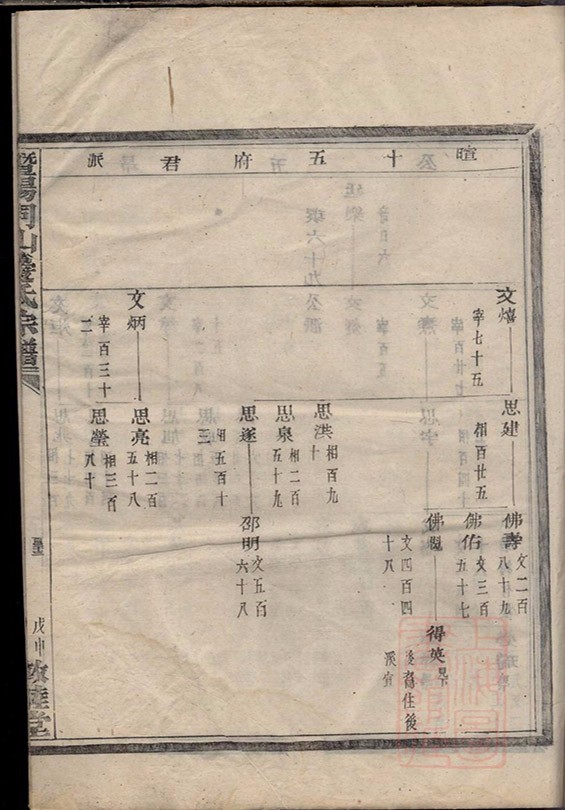 暄十五府君派
文熺
宰七十五
文炳
宰百三十
二
思建
相百廿五
思洪
相百九
十
思泉
相二百
五十九
思遂
相五百十
三
思亮
相二百
五十八
思瑩
相三百
八十
佛壽
文二百
八十九
佛佑
文三百
五十七
佛
文四百四
十八
邵明
文五百
六十八
得英 見下
後裔住後
溪宜
暨陽
山
氏宗譜
戊申
堂